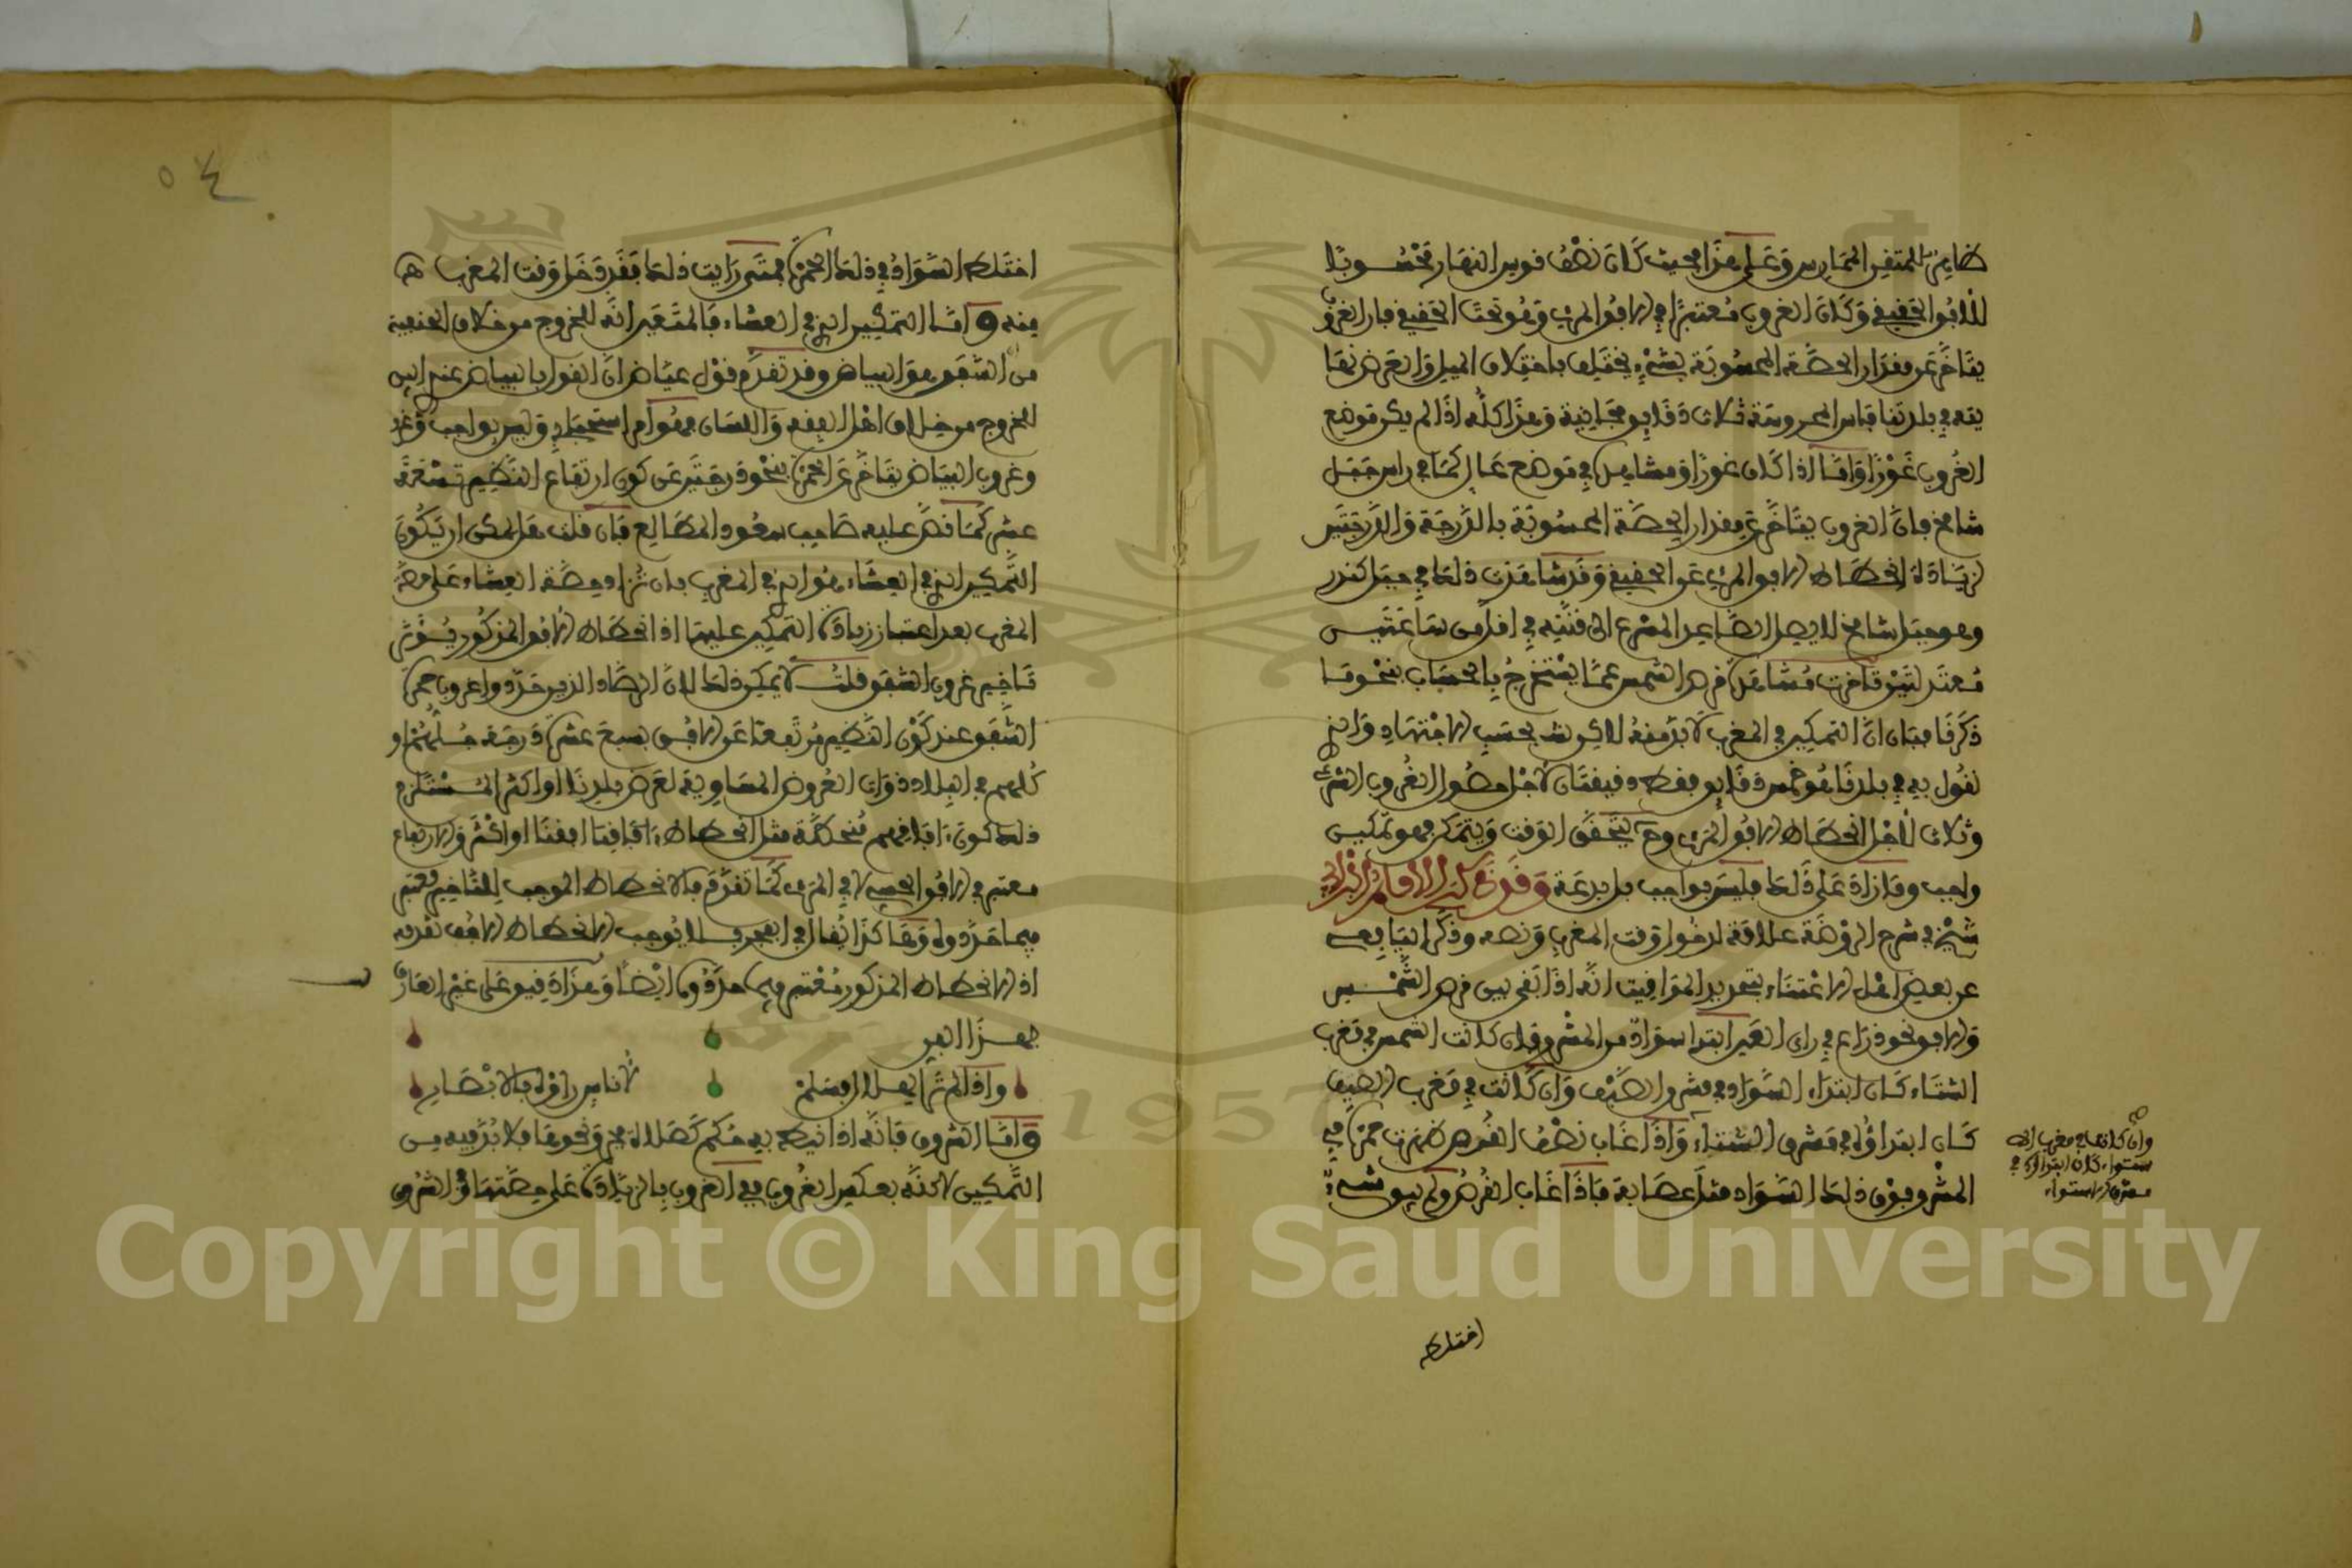 ظاهر للمتفر الممارس وعلى هذا بحيث كان نصف قوس النهار محسوبا
للافق الحقيقي وكان الغروب معتبرا في الافق المرئي وهو تحت الحقيقي فان الغروب
يتاخر عن مقدار الحصة المحسوبة بشيء يختلف باختلاف الميل والعرض
يقع في بلدتنا فاس المحروسة ثلاث دقايق وهذا كله اذا لم يكن موضع
الغروب غورا واما اذا كان غورا او مشاهد في موضع عال كما في راس جبل
شامخ فان الغروب يتاخر عن مقدار الحصة المحسوبة بالدرجة والدرجتين
لزيادة انحطاط الافق المرئي عن الحقيقي وقد شاهدت ذلك في جبل
وهو جبل شامخ لا يصل الصاعد المسرع الى قنته في اقل من ساعتين
معتدلتين وتاخرت مشاهدة قرص الشمس عما يستخرج بالحساب بنحو ما
ذكرنا فبان ان التمكين في المغرب لا بد منه لاكن بحسب الاجتهاد والذي
نقول به في بلدنا هو خمس دقايق فقط دقيقتان لاجل حصول الغروب الشرعي
وثلاث لاجل انحطاط الافق المرئي وح يتحقق الوقت ويتمكن فهو تمكين
واجب وما زاد على ذلك فليس بواجب بل بدعة وقد ذكر الامام
شيخ في شرح الروضة علامة لدخول وقت المغرب ونصه وذكر لنا
عن بعض اهل الاعتناء بتحرير المواقيت انه اذا بقي بين قرص الشمس
والافق نحو ذراع في راي العين ابتدا سواد من المشرق فان كانت الشمس في مغرب
الشتاء كان ابتداء السواد في مشرق الصيف وان كانت في مغرب الصيف
كان ابتداؤه في مشرق الشتاء واذا غاب نصف القرص ظهرت حمرة في
المشرق فوق ذلك السواد مثل عصابة فاذا غاب القرص ولم يبق شيء
وان كانت في مغرب الاستواء كان ابتداؤه في
مشرق الاستواء
اختلط
٥٤
اختلط السواد في ذلك الحمرة فمتى رايت ذلك فقد دخل وقت المغرب هـ
منه واما التمكين الذي في العشاء فالمتعين انه للخروج من خلاف الحنفية
من ان الشفق هو البياض وقد تقدم قول عياض ان القول بالبياض عندي ابين
للخروج من خلاف اهل الفقه واللسان فهو امر استحبابي وليس بواجب
وغروب البياض يتاخر عن الحمرة بنحو درجتين عن كون ارتفاع النظير تسعة
عشر كما نص عليه صاحب سعود المطالع فان قلت هل يمكن ان يكون
التمكين الذي في العشاء هو الذي في المغرب بان تزاد حصة العشاء على حصة
المغرب بعد اعتبار زيادة التمكين عليها اذ انحطاط الافق المذكور يؤثر
تاخير غروب الشفق قلت لا يمكن ذلك لان الرصاد الذين حددوا غروب حمرة
الشفق عند كون النظير مرتفعا عن الافق بسبع عشرة درجة
كلهم في البلاد ذوات العروض المساوية لعرض بلدنا او اكثر المستلزم
ذلك كون افاقهم منحطة مثل انحطاط افاقنا او اكثر والارتفاع
معتبر في الافق الحسي لا في المرئي كما تقدم فالانحطاط الموجب للتاخير معتبر
فيما حددوه وهاكذا يقال في الفجر فلا يوجب الانحطاط الافقي تقدمه
اذ الانحطاط المذكور معتبر فيما حددوه ايضا وهذا دقيق على غير العارف
بهذا الفن
واذا لم تر الهلال فسلم لاناس راوه بالابصار
واما الشروق فانه اذا انيط به حكم كصلاة عيد ونحوها فلا بد فيه من
التمكين لاكنه بعكس الغروب ففي الغروب بالزيادة على حصتها وفي الشروق